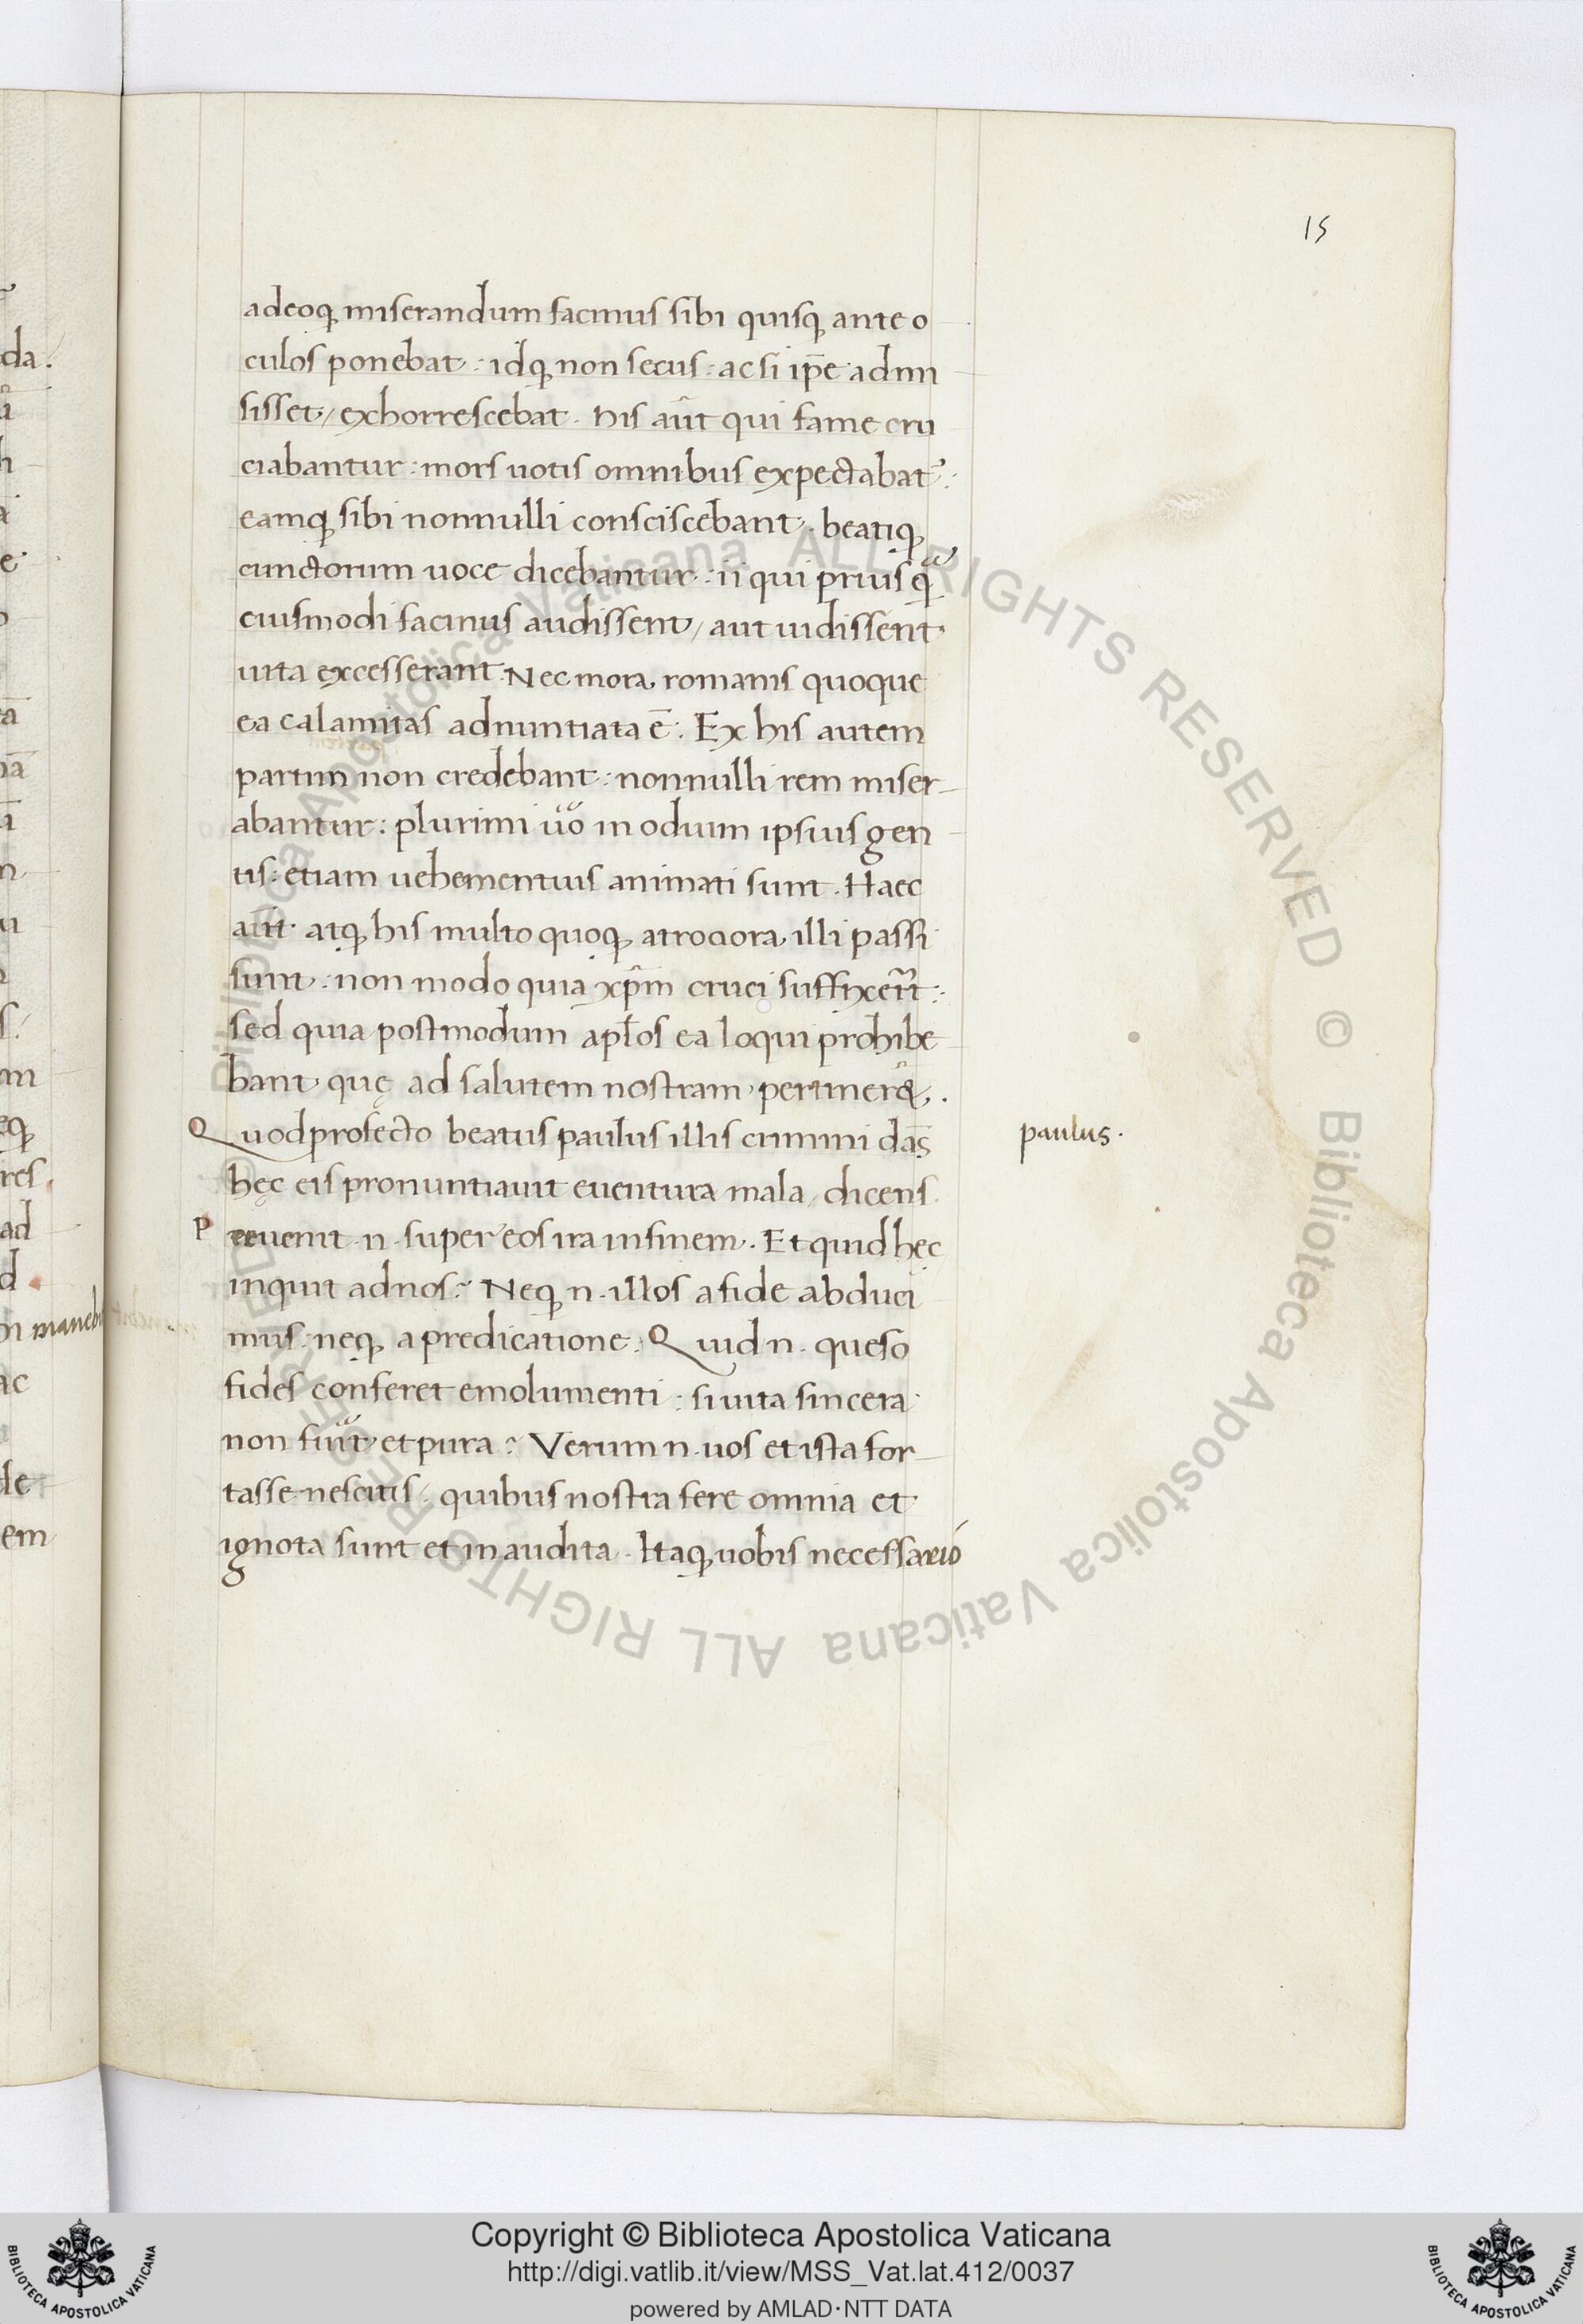 15
adeoq; miserandum facinus sibi quisq; ante o
culos ponebat: idq; non secus: ac si ip̄e admi
sisset, exhorrescebat. his aūt qui fame cru
ciabantur: mors uotis omnibus expectabat᷑:
eamq; sibi nonnulli consciscebant. beatiq;
cunctorum uoce dicebantur: ii qui prius qͣ
eiusmodi facinus audissent, aut uidissent
uita excesserant. Nec mora, romanis quoque
ea calamitas adnuntiata ē. Ex his autem
partim non credebant: nonnulli rem miser-
abantur: plurimi uͦo in odium ipsius gen
tis: etiam uehementius animati sunt. Haec
aūt atq; his multo quoq; atrociora, illi passi
sunt: non modo quia xp̄m cruci suffixer̄t:
sed quia postmodum apl̄os ea loqui prohibe
bant, quę ad salutem nostram pertiner&̄.
Quod profecto beatus paulus illis crimini dās
hęc eis pronuntiauit euentura mala, dicens
P eruenit .n. super eos ira in finem. Et quid hęc
inquit ad nos? Neq; .n. illos a fide abduci
mus: neq; a predicatione. Quid .n. queso
fides conferet emolumenti: si uita sincera
non fuīt, et pura? Verum .n. uos et ista for-
tasse nescitis, quibus nostra fere omnia et
ignota sunt et inaudita. Itaq; uobis necessarió
paulus.
manebi
Biblioteca Apostolica Vaticana ALL RIGHTS RESERVED © Biblioteca Apostolica Vaticana ALL RIGHTS RESERVED ©
Copyright © Biblioteca Apostolica Vaticana
http://digi.vatlib.it/view/MSS_Vat.lat.412/0037
powered by AMLAD·NTT DATA
BIBLIOTECA APOSTOLICA VATICANA
BIBLIOTECA APOSTOLICA VATICANA